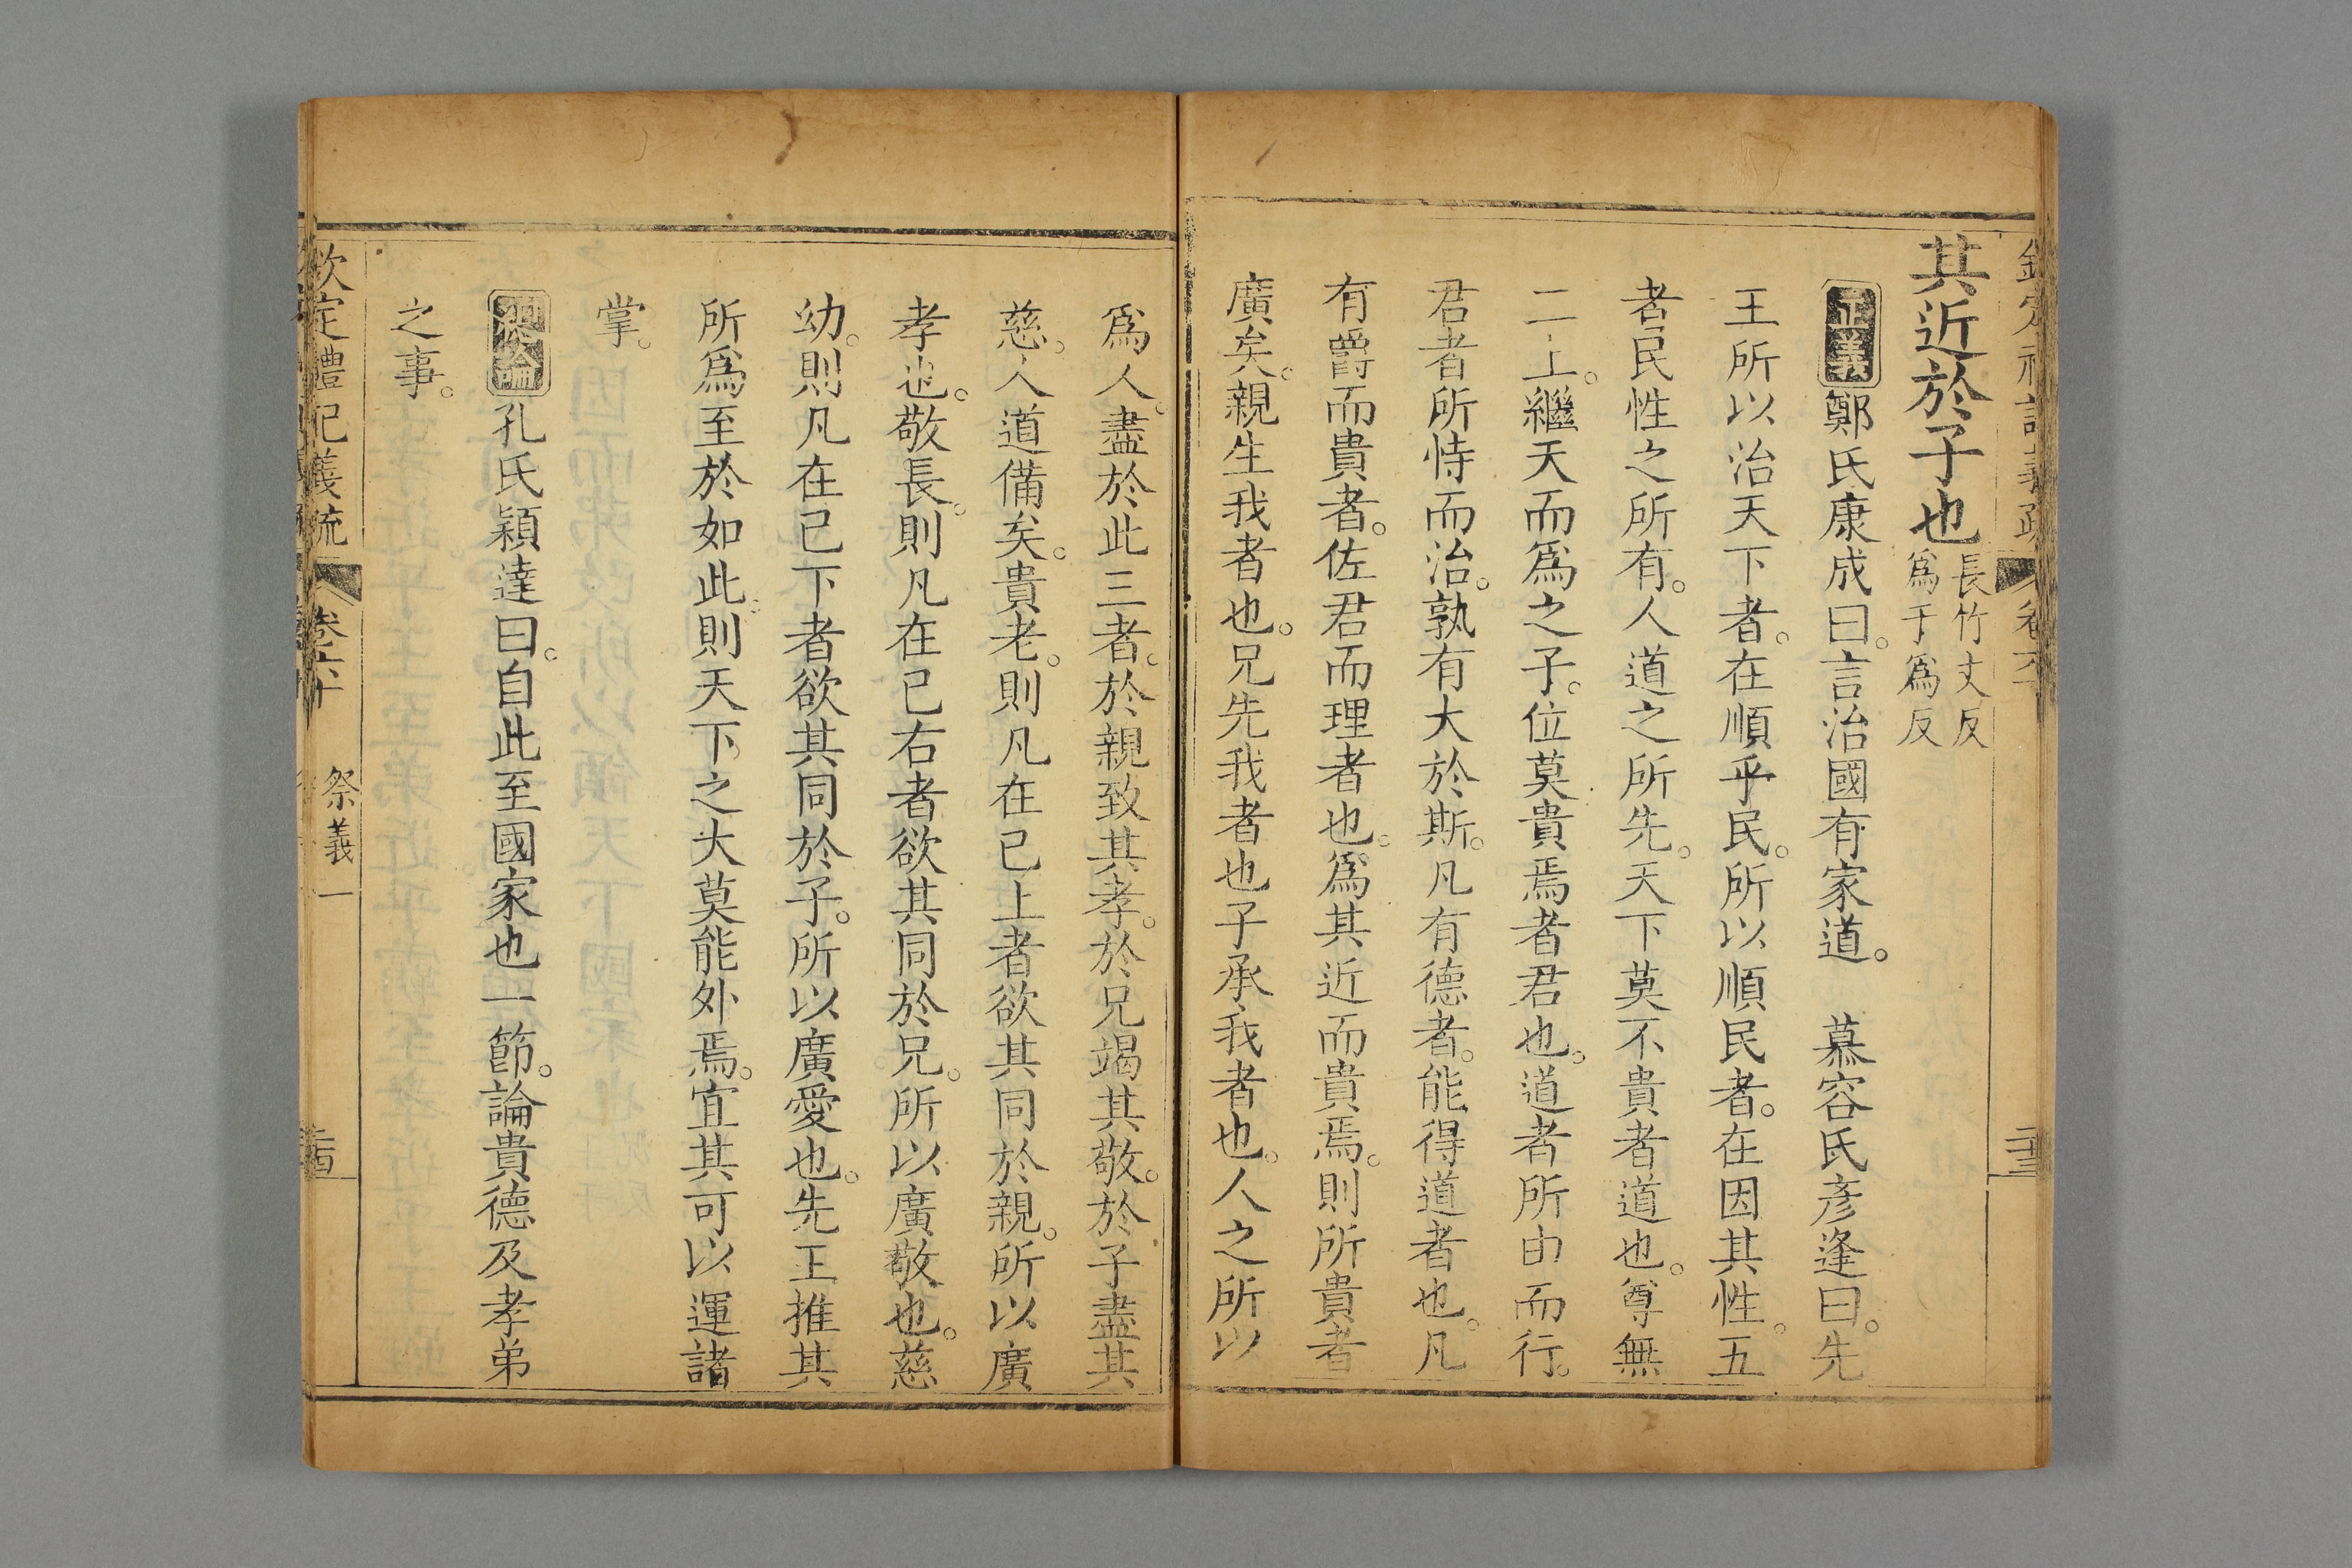 其近於子也長竹丈反
爲于爲反
正義鄭氏康成曰。言治國有家道。　慕容氏彦逢曰。先
王所以治天下者。在順乎民。所以順民者。在因其性。五
者民性之所有。人道之所先。天下莫不貴者道也。尊無
二上。繼天而爲之子。位莫貴焉者君也。道者所由而行。
君者所恃而治。孰有大於斯。凡有德者。能得道者也。凡
有爵而貴者。佐君而理者也。爲其近而貴焉。則所貴者
廣矣。親生我者也。兄先我者也子承我者也。人之所以
爲人。盡於此三者。於親致其孝。於兄竭其敬。於子盡其
慈。人道備矣。貴老。則凡在已上者欲其同於親。所以廣
孝也。敬長。則凡在已右者欲其同於兄。所以廣敬也。慈
幼。則凡在已下者欲其同於子。所以廣愛也。先王推其
所爲至於如此。則天下之大莫能外焉。宜其可以運諸
掌。
總論孔氏穎達曰。自此至國家也一節。論貴德及孝弟
之事。
欽定禮記義疏　卷六十　祭義一